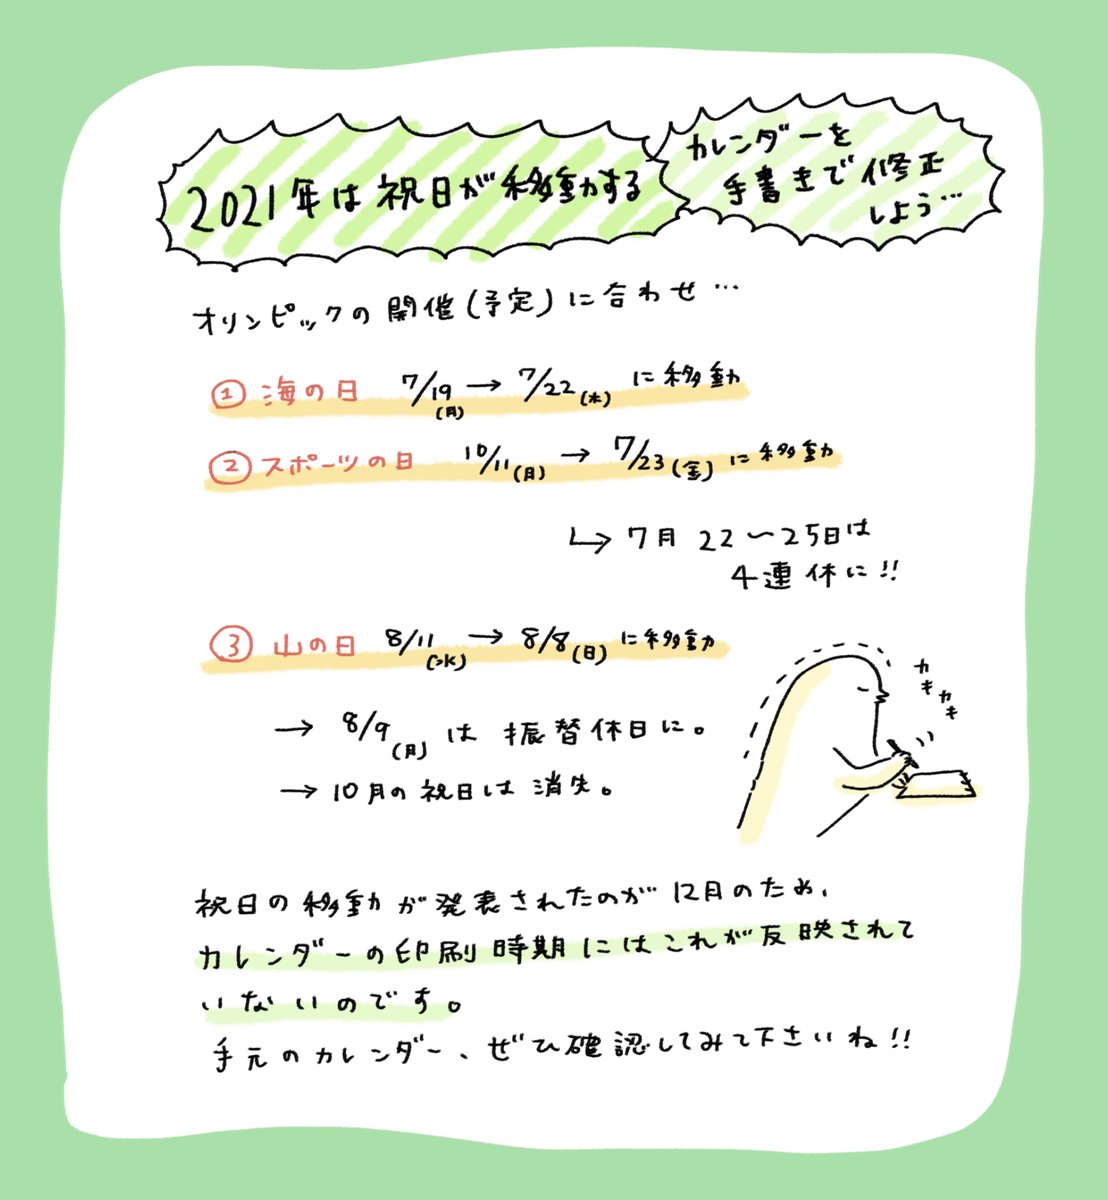 2021年は祝日が移動する
カレンダーを
手書きで修正
しよう…
オリンピックの開催(予定)に合わせ…
① 海の日 7/19(月) → 7/22(木) に移動
② スポーツの日 10/11(月) → 7/23(金) に移動
↳ 7月 22〜25日は
4連休に!!
③ 山の日 8/11(水) → 8/8(日) に移動
→ 8/9(月) は 振替休日に。
→ 10月の祝日は 消失。
カキ
カキ
祝日の移動が発表されたのが12月のため、
カレンダーの印刷時期にはこれが反映されて
いないのです。
手元のカレンダー、ぜひ確認してみて下さいね!!